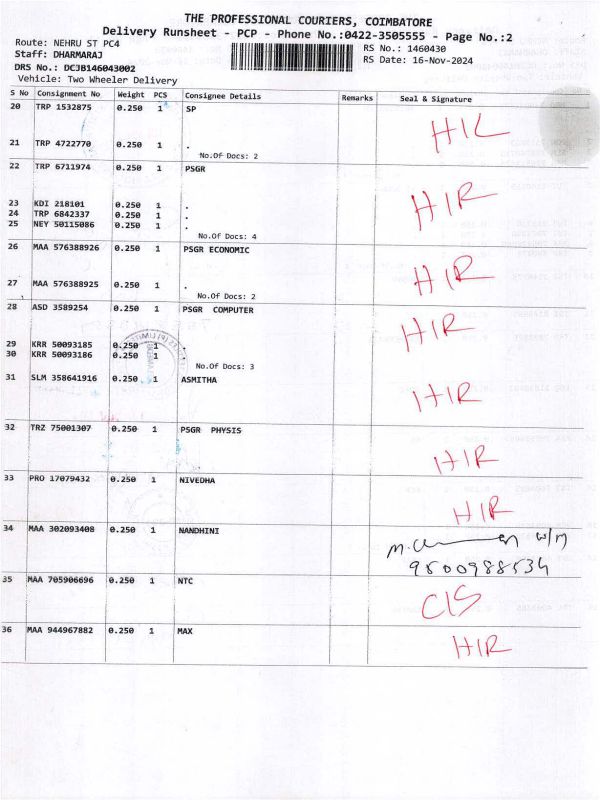 THE PROFESSIONAL COURIERS, COIMBATORE
Delivery Runsheet - PCP - Phone No.:0422-3505555 - Page No.:2
Route: NEHRU ST PC4 RS No.: 1460430
Staff: DHARMARAJ RS Date: 16-Nov-2024
DRS No.: DCJB146043002
Vehicle: Two Wheeler Delivery
S No Consignment No Weight PCS Consignee Details Remarks Seal & Signature
20 TRP 1532875 0.250 1 SP
HIL
21 TRP 4722770 0.250 1 .
No.Of Docs: 2
22 TRP 6711974 0.250 1 PSGR
HIR
23 KDI 218101 0.250 1 .
24 TRP 6842337 0.250 1 .
25 NEY 50115086 0.250 1 .
No.Of Docs: 4
26 MAA 576388926 0.250 1 PSGR ECONOMIC
HIR
27 MAA 576388925 0.250 1 .
No.Of Docs: 2
28 ASD 3589254 0.250 1 PSGR COMPUTER
HIR
29 KRR 50093185 0.250 1 .
30 KRR 50093186 0.250 1 .
No.Of Docs: 3
31 SLM 358641916 0.250 1 ASMITHA
HIR
32 TRZ 75001307 0.250 1 PSGR PHYSIS
HIR
33 PRO 17079432 0.250 1 NIVEDHA
HIR
34 MAA 302093408 0.250 1 NANDHINI
9500988534
35 MAA 705906696 0.250 1 NTC
CIS
36 MAA 944967882 0.250 1 MAX
HIR